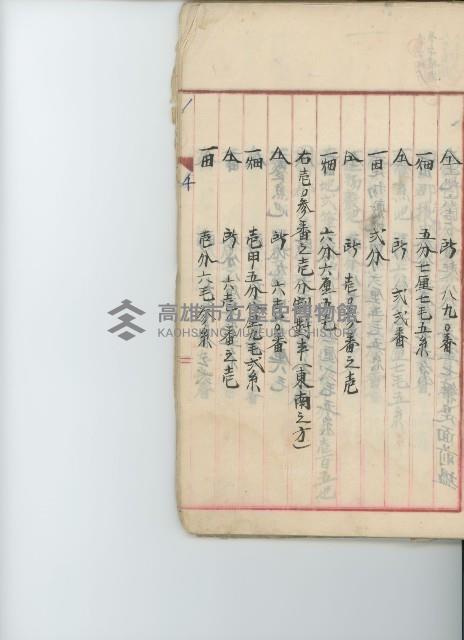 仝 所 八九〇番
一畑 五分七厘七毛五糸
仝 所 弍弍番
一田 弍分
仝 所 壱〇番之壱
一畑 六分六厘五毛
右壱〇参番之壱分割製率(東南之方)
仝 所 六壱〇番
一畑 壱甲五分 厘九毛弍糸
仝 所 六壱〇番之壱
一田 壱分六毛参糸
1
4
高雄市立歷史博物館
KAOHSIUNG MUSEUM OF HISTORY